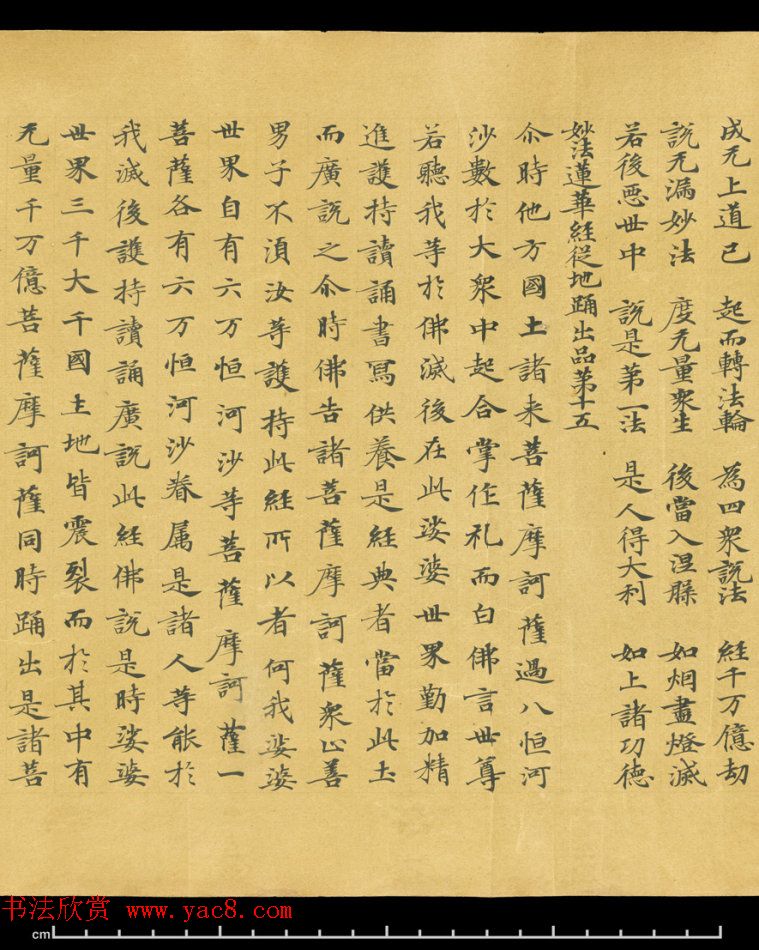 成无上道已 起而轉法輪 為四衆說法 經千万億劫
說无漏妙法 度无量衆生 後當入涅槃 如烟盡燈滅
若後恶世中 說是第一法 是人得大利 如上諸功德
妙法蓮華經從地踊出品第十五
尒時他方國土諸来菩薩摩訶薩過八恒河
沙數於大衆中起合掌作礼而白佛言世尊
若聽我等於佛滅後在此娑婆世界勤加精
進護持讀誦書寫供養是經典者當於此土
而廣說之尒時佛告諸菩薩摩訶薩衆止善
男子不湏汝等護持此經所以者何我娑婆
世界自有六万恒河沙等菩薩摩訶薩一
菩薩各有六万恒河沙眷属是諸人等能於
我滅後護持讀誦廣說此經佛說是時娑婆
世界三千大千國土地皆震裂而於其中有
无量千万億菩薩摩訶薩同時踊出是諸菩
书法欣赏 www.yac8.com
cm